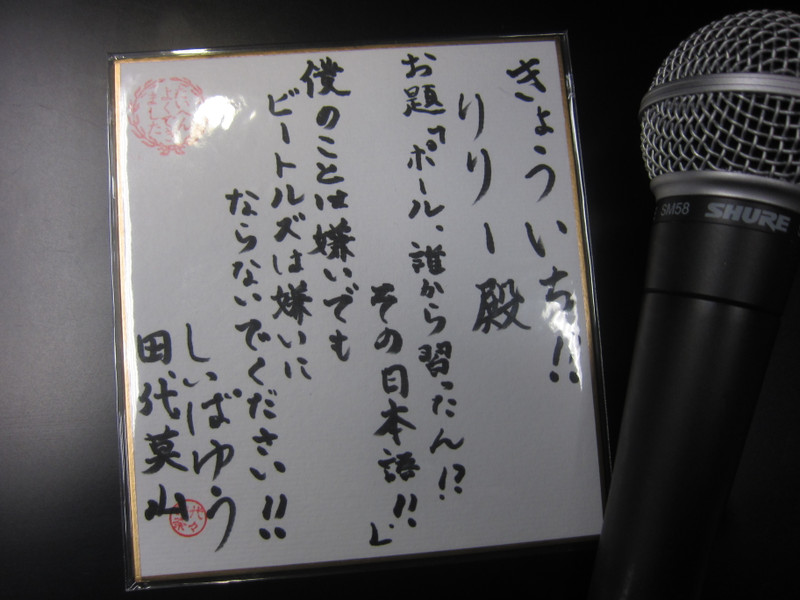 きょういち!!
りりー殿
お題『ポール、誰から習ったん!?
その日本語!!』
僕のことは嫌いでも
ビートルズは嫌いに
ならないでください!!
しいばゆう
田代莫山
SM58 SHURE